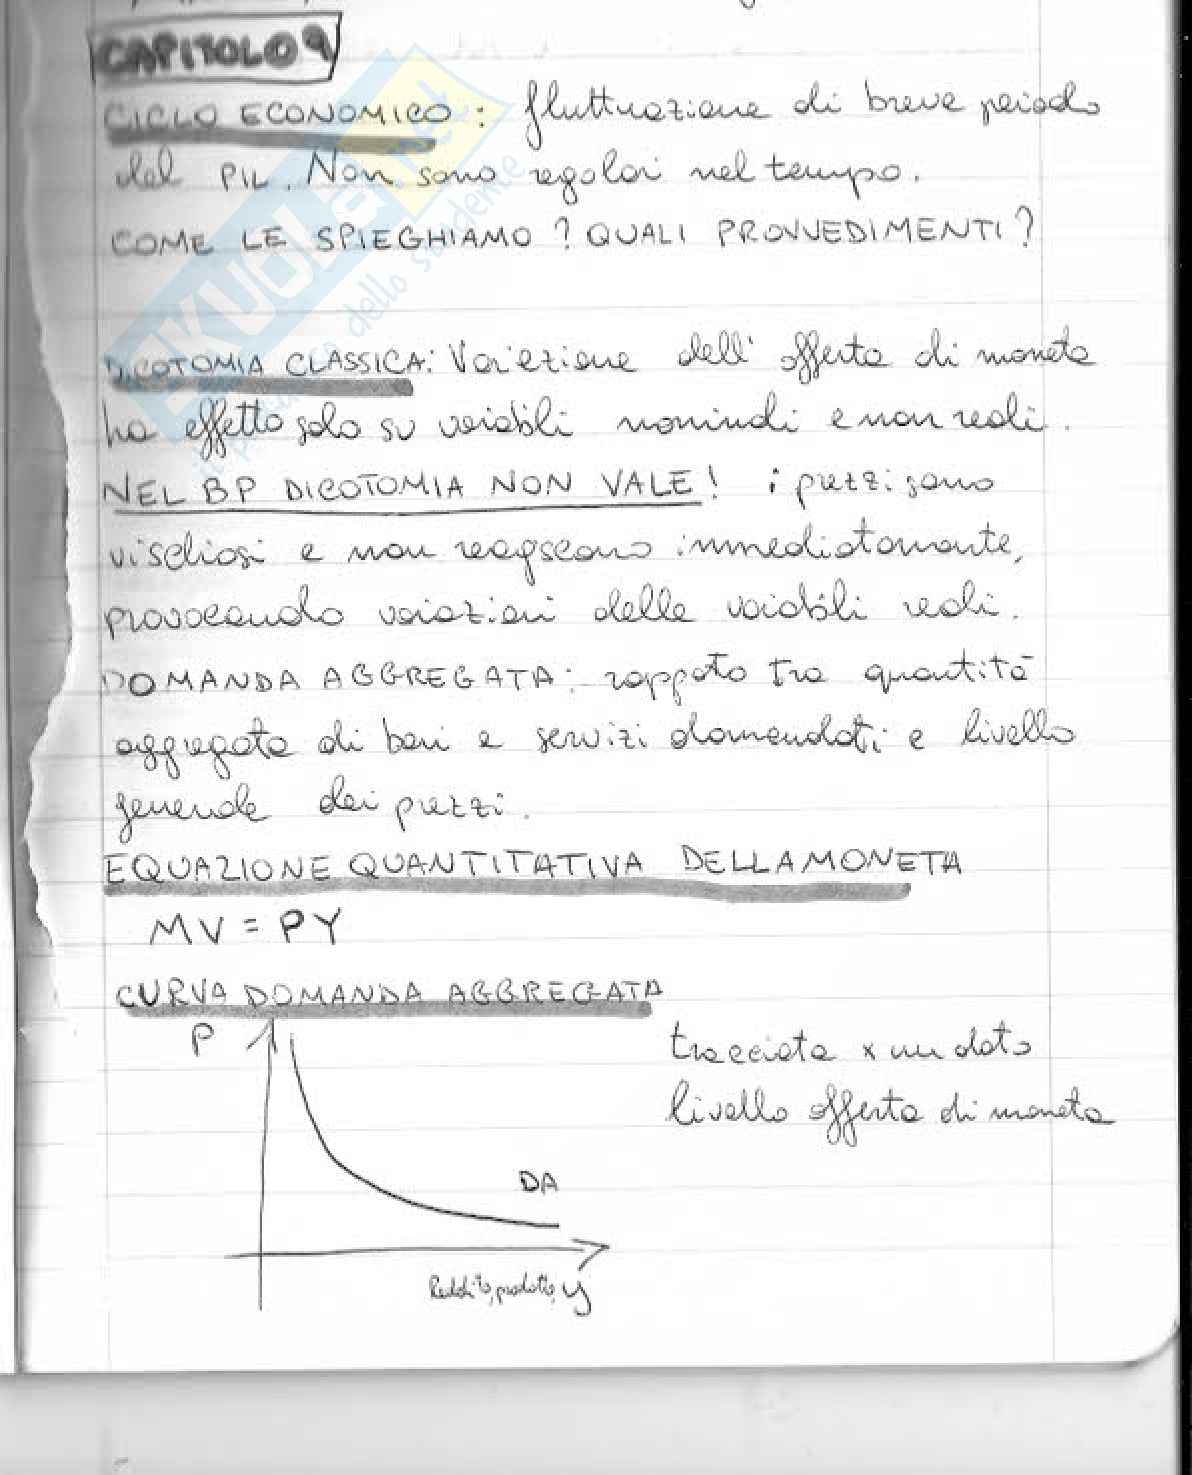 CAPITOLO 9
CICLO ECONOMICO: fluttuazione di breve periodo
del PIL. Non sono regolari nel tempo.
COME LE SPIEGHIAMO? QUALI PROVVEDIMENTI?
DICOTOMIA CLASSICA: Variazione dell'offerta di moneta
ha effetto solo su variabili nominali e non reali.
NEL BP DICOTOMIA NON VALE! i prezzi sono
vischiosi e non reagiscono immediatamente,
provocando variazioni delle variabili reali.
DOMANDA AGGREGATA: rapporto tra quantità
aggregata di beni e servizi domandati e livello
generale dei prezzi.
EQUAZIONE QUANTITATIVA DELLA MONETA
MV = PY
CURVA DOMANDA AGGREGATA
P
tracciata x un dato
livello offerta di moneta
DA
Reddito, prodotto, y
SKUOLA.NET
il paradiso dello studente